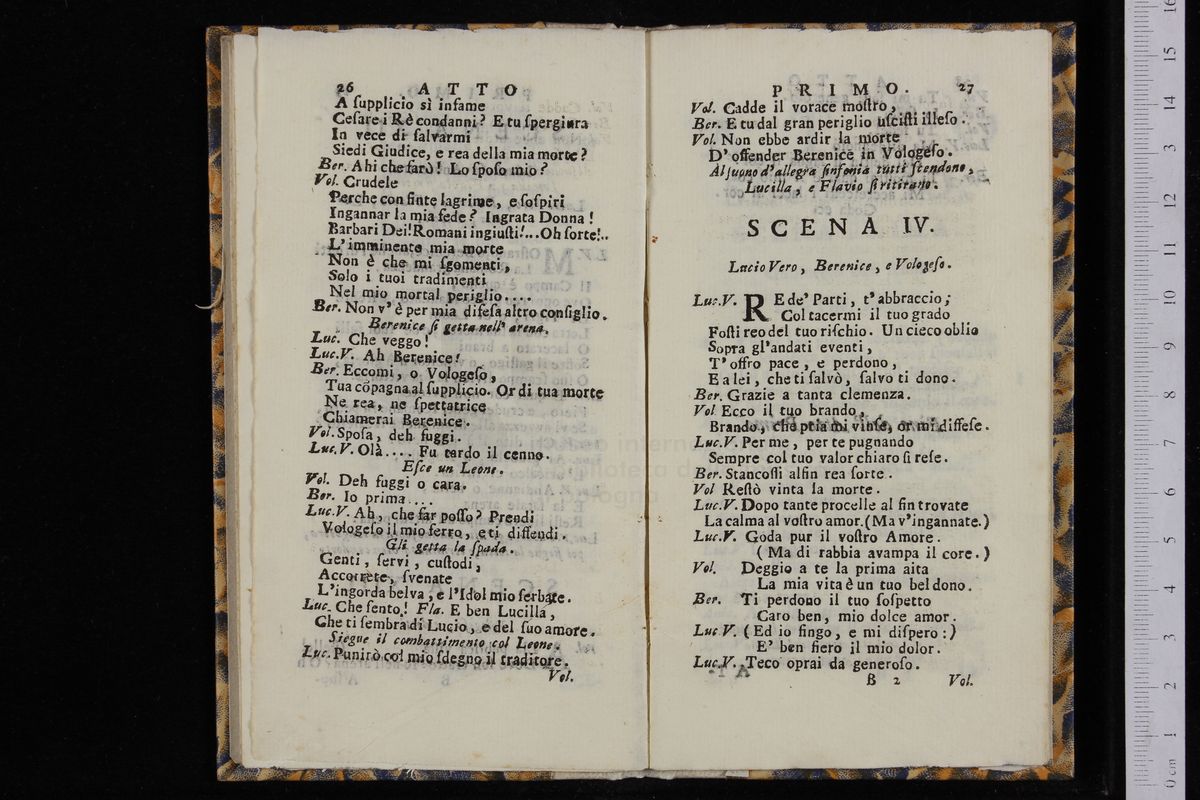 26 A T T O
A ſupplicio sì infame
Ceſare i Rè condanni? E tu ſpergiura
In vece di ſalvarmi
Siedi Giudice, e rea della mia morte?
Ber. Ahi che farò! Lo ſpoſo mio?
Vol. Crudele
Perche con finte lagrime, e ſoſpiri
Ingannar la mia fede? Ingrata Donna!
Barbari Dei! Romani ingiuſti!...Oh ſorte!..
L'imminente mia morte
Non è che mi ſgomenti,
Solo i tuoi tradimenti
Nel mio mortal periglio....
Ber. Non v'è per mia difeſa altro conſiglio.
Berenice ſi getta nell' arena.
Luc. Che veggo!
Luc.V. Ah Berenice!
Ber. Eccomi, o Vologeſo,
Tua cōpagna al ſupplicio. Or di tua morte
Ne rea, ne ſpettatrice
Chiamerai Berenice.
Vol. Spoſa, deh fuggi.
Luc.V. Olà.... Fu tardo il cenno.
Eſce un Leone.
Vol. Deh fuggi o cara.
Ber. Io prima....
Luc.V. Ah, che far poſſo? Prendi
Vologeſo il mio ferro, e ti diffendi.
Gli getta la ſpada.
Genti, ſervi, cuſtodi,
Accorrete, ſvenate
L'ingorda belva, e l'Idol mio ſerbate.
Luc. Che ſento! Fla. E ben Lucilla,
Che ti ſembra di Lucio, e del ſuo amore.
Siegue il combattimento col Leone.
Luc. Punirò col mio ſdegno il traditore.
Vol.
P R I M O. 27
Vol. Cadde il vorace moſtro,
Ber. E tu dal gran periglio uſciſti illeſo.
Vol. Non ebbe ardir la morte
D'offender Berenice in Vologeſo.
Al ſuono d'allegra ſinfonia tutti ſcendono,
Lucilla, e Flavio ſi ritirano.
SCENA IV.
Lucio Vero, Berenice, e Vologeſo.
Luc.V. RE de' Parti, t'abbraccio;
Col tacermi il tuo grado
Foſti reo del tuo riſchio. Un cieco oblio
Sopra gl'andati eventi,
T'offro pace, e perdono,
E a lei, che ti ſalvò, ſalvo ti dono.
Ber. Grazie a tanta clemenza.
Vol. Ecco il tuo brando,
Brando, che pria mi vinſe, or mi diffeſe.
Luc.V. Per me, per te pugnando
Sempre col tuo valor chiaro ſi reſe.
Ber. Stancoſſi alfin rea ſorte.
Vol Reſtò vinta la morte.
Luc.V. Dopo tante procelle al fin trovate
La calma al voſtro amor. (Ma v'ingannate.)
Luc.V. Goda pur il voſtro Amore.
(Ma di rabbia avampa il core.)
Vol. Deggio a te la prima aita
La mia vita è un tuo bel dono.
Ber. Ti perdono il tuo ſoſpetto
Caro ben, mio dolce amor.
Luc V. (Ed io fingo, e mi diſpero:)
E' ben fiero il mio dolor.
Luc.V. Teco oprai da generoſo.
B 2 Vol.